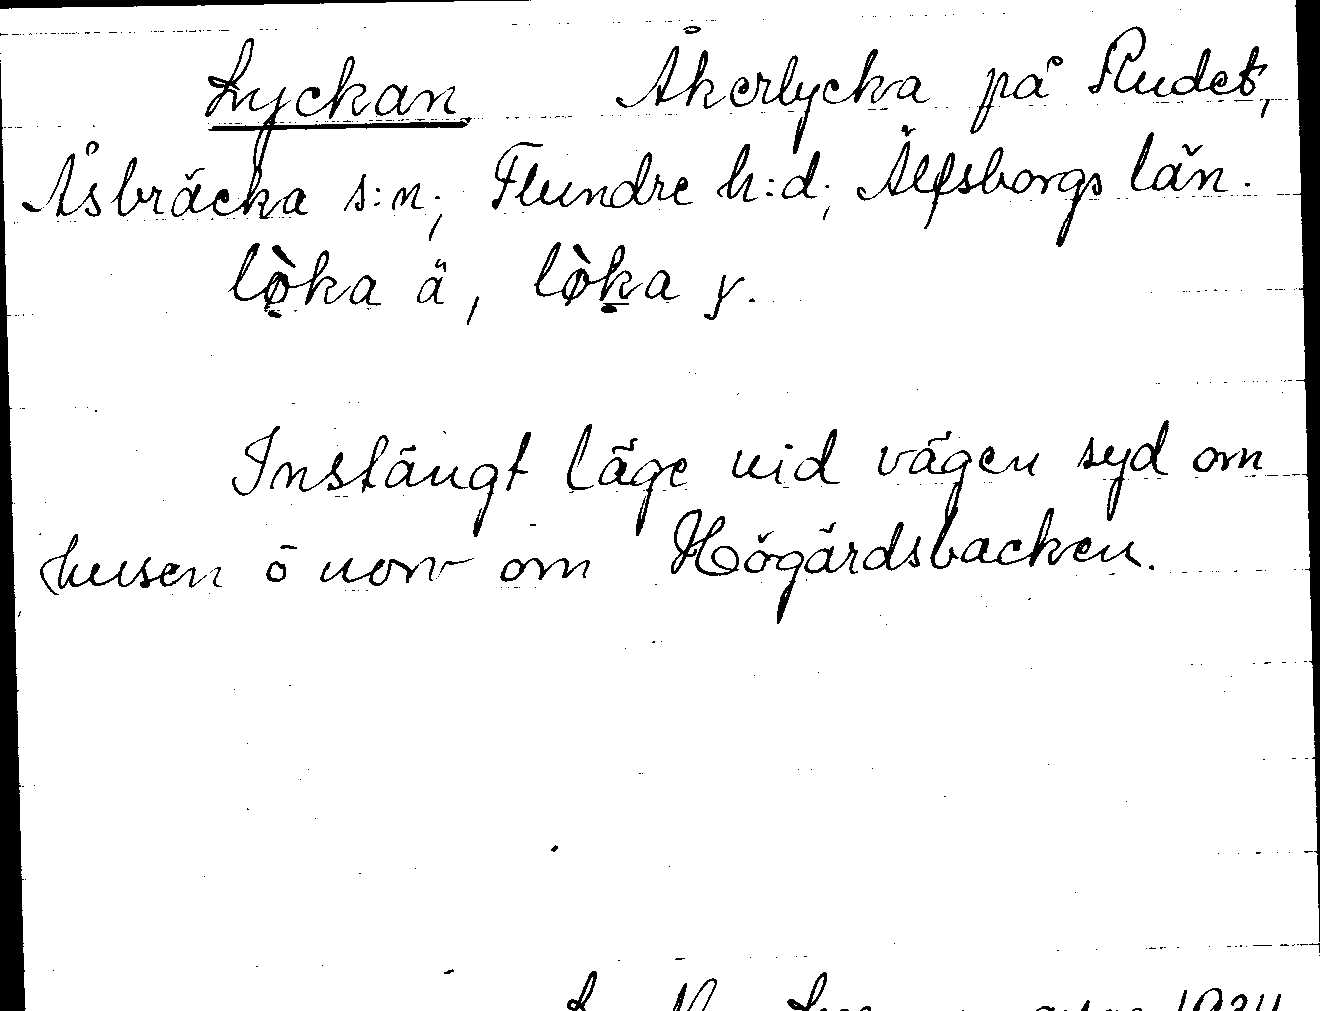 Lyckan. Åkerlycka på Rudet,
Åsbräcka s:n; Flundre h:d; Älfsborgs län.
lø̀ka ä, lø̀ka y.
Instängt läge vid vägen syd om
husen ö norr om Högårdsbacken.
1934